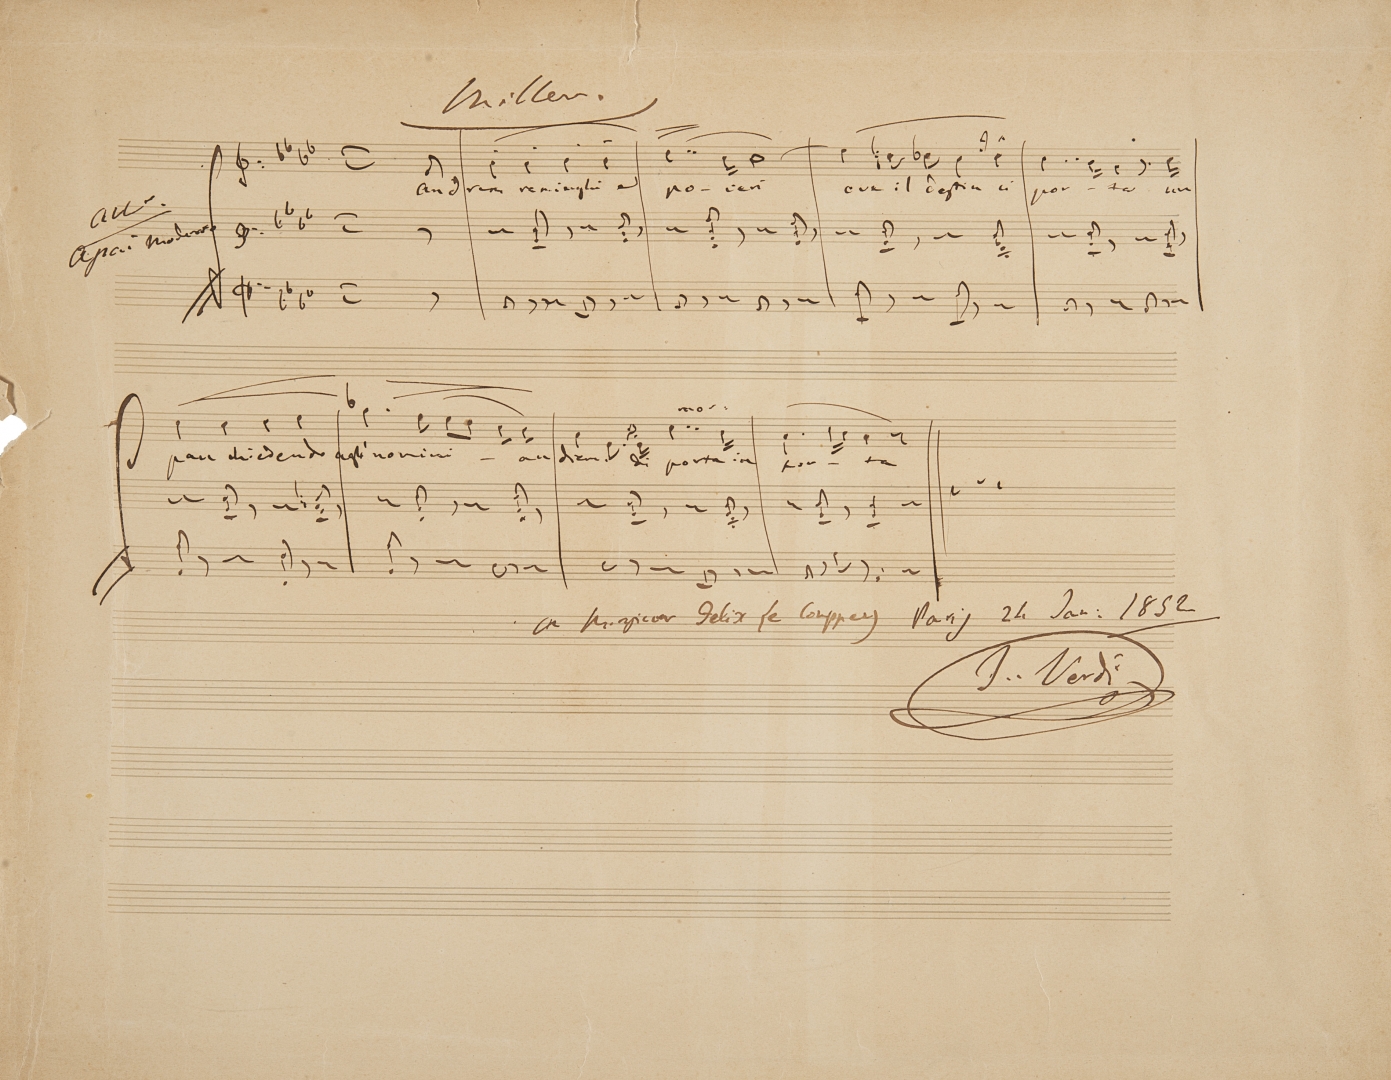 Miller.
All.°
Assai moderato
andrem raminghi e po - veri ove il destin ci por - ta un
pan chiedendo agli uomini - an drem di porta in por - ta
A Monsieur Félix Le Couppey Paris 24 Jan: 1852
G.. Verdi